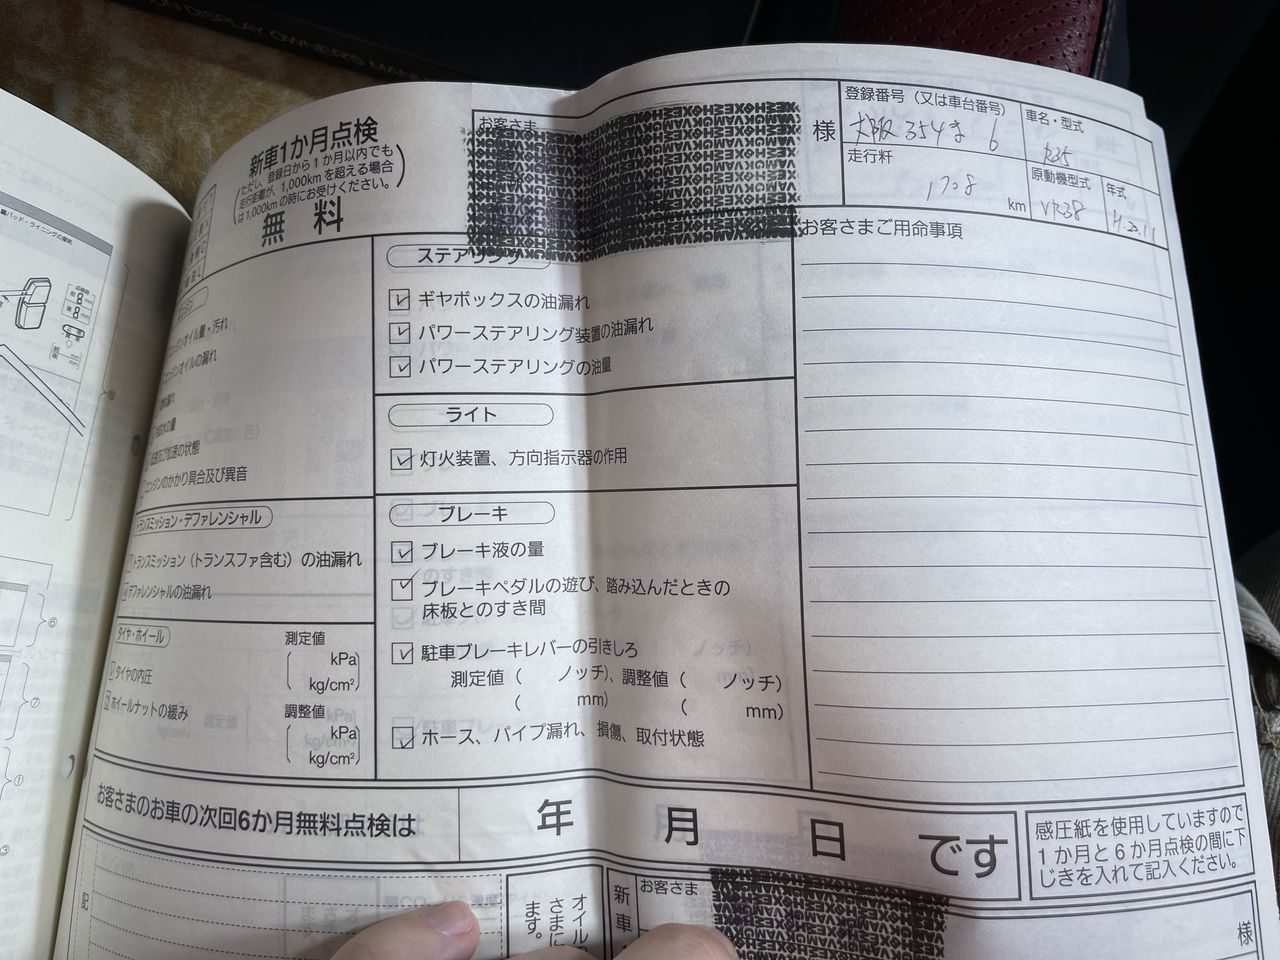 ON DISPLAY OWNER'S MAN
新車1か月点検
(ただし、登録日から1か月以内でも
走行距離が、1,000kmを超える場合
は1,000kmの時にお受けください。)
無料
お客さま
様
登録番号(又は車台番号)
大阪 354 ま 6
車名・型式
R35
走行粁
1708
km
原動機型式
VR38
年式
H.20.11
お客さまご用命事項
エンジンオイルの漏れ
エンジンのかかり具合及び異音
トランスミッション・デファレンシャル
トランスミッション(トランスファ含む)の油漏れ
デファレンシャルの油漏れ
タイヤ・ホイール
測定値
( kPa)
kg/cm²)
タイヤの内圧
ホイールナットの緩み
調整値
( kPa)
kg/cm²)
ステアリング
ギヤボックスの油漏れ
パワーステアリング装置の油漏れ
パワーステアリングの油量
ライト
灯火装置、方向指示器の作用
ブレーキ
ブレーキ液の量
ブレーキペダルの遊び、踏み込んだときの
床板とのすき間
駐車ブレーキレバーの引きしろ
測定値( ノッチ)、調整値( ノッチ)
( mm) ( mm)
ホース、パイプ漏れ、損傷、取付状態
お客さまのお車の次回6か月無料点検は
年 月 日 です
感圧紙を使用していますので
1か月と6か月点検の間に下
じきを入れて記入ください。
記
オイルの
さまに
ます。
新車1
お客さま
様
■パッド・ライニングの摩耗